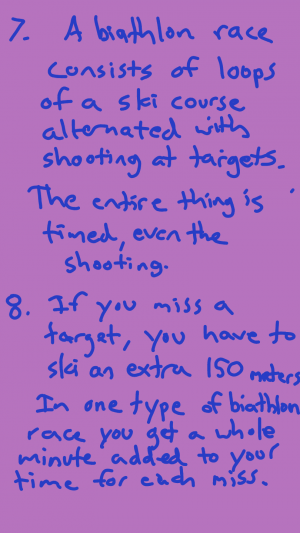 7. A biathlon race
consists of loops
of a ski course
alternated with
shooting at targets.
The entire thing is
timed, even the
shooting.
8. If you miss a
target, you have to
ski an extra 150 meters
In one type of biathlon
race you get a whole
minute added to your
time for each miss.